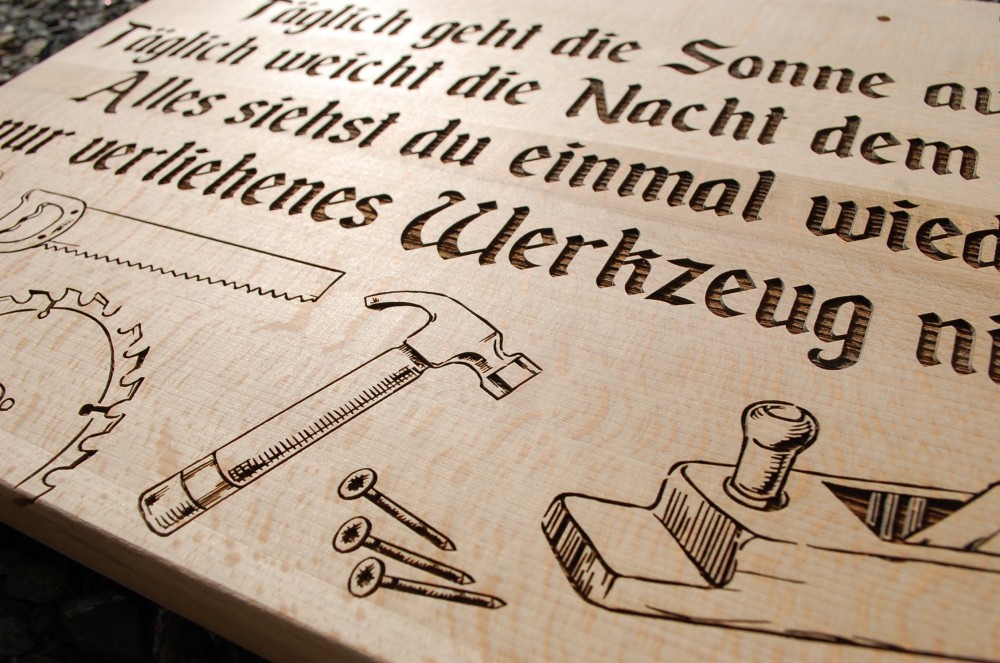 Täglich geht die Sonne au
Täglich weicht die Nacht dem
Alles siehst du einmal wied
nur verliehenes Werkzeug ni